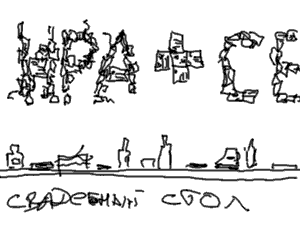 ИРА + СЕ
СВАДЕБНЫЙ СТОЛ